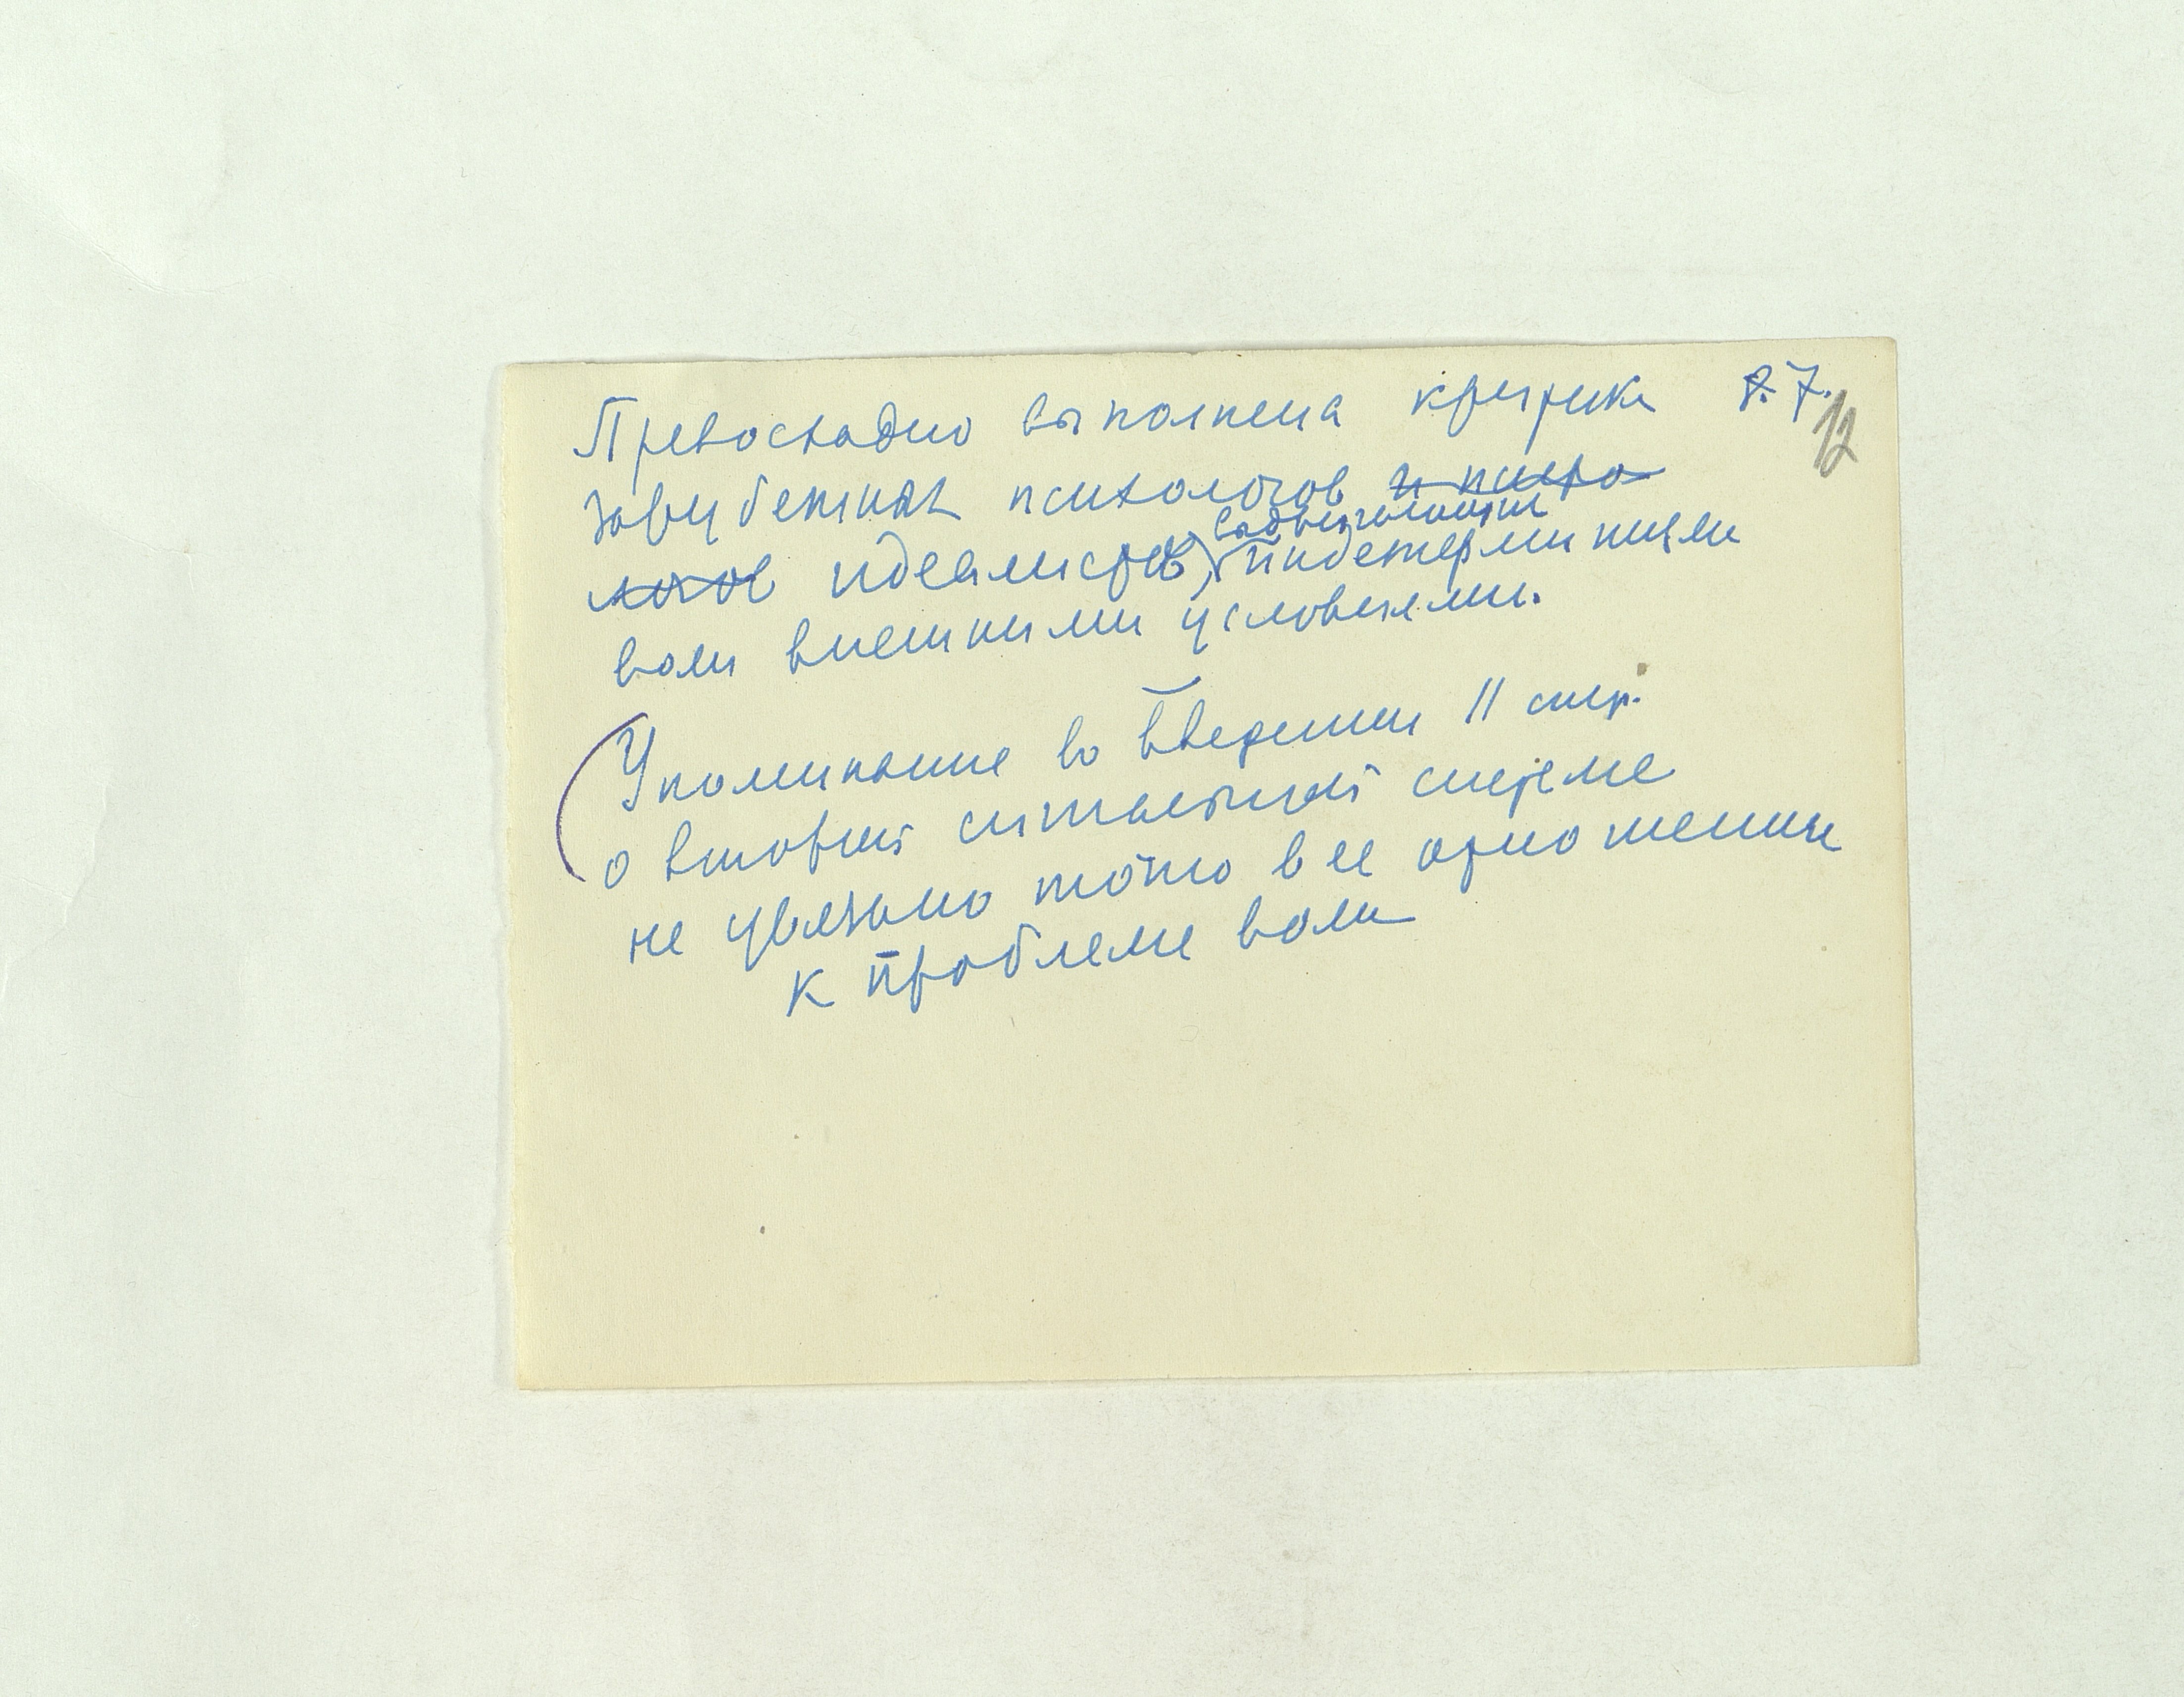 Превосходно выполнена критика 8.7.
12
зарубежных психологов и невро
логов идеалистов, индетерминизм
воли внешними условиями.
Упоминание во введении 11 стр.
о второй сигнальной системе
не увязано точно в ее отношении
к проблеме воли